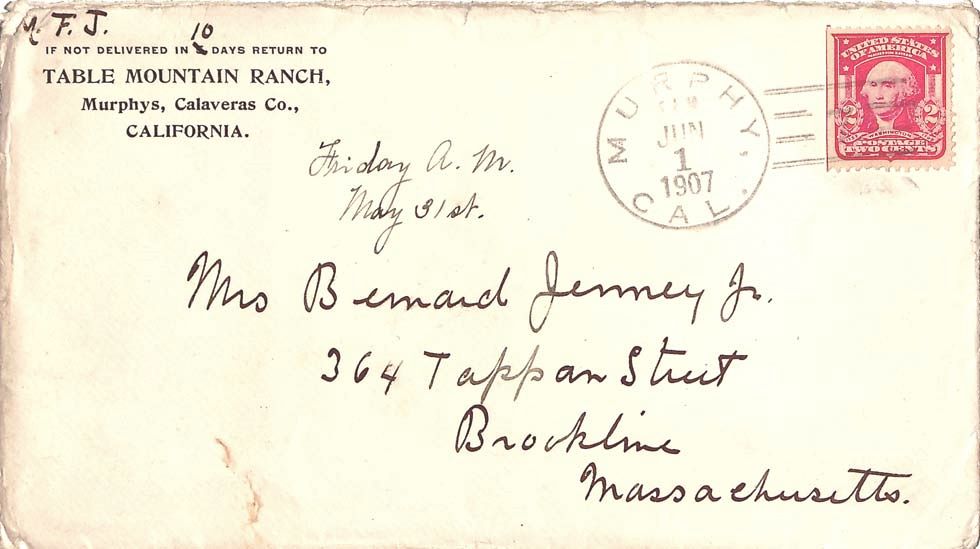 M. F. J.
IF NOT DELIVERED IN 10 DAYS RETURN TO
TABLE MOUNTAIN RANCH,
Murphys, Calaveras Co.,
CALIFORNIA.
Friday A. M.
May 31st.
MURPHY,
JUN
1
1907
CAL.
UNITED STATES
OF AMERICA
2 2
WASHINGTON
POSTAGE
TWO CENTS
Mrs Bernard Jenney Jr.
364 Tappan Street
Brookline
Massachusetts.